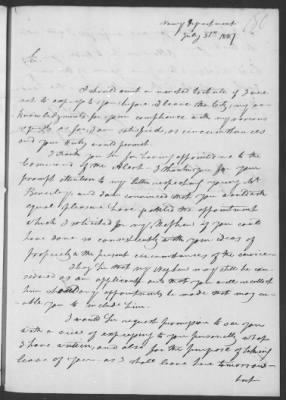 Navy Department
July 31st 18
Sir,
I should omit a marked tribute if I were
not to express to you before I leave the City, my ac-
knowledgments for your compliance with my various
as far, I am satisfied, as circumstances
and your duty would permit.
I thank you Sir for having appointed me to the
Command of the Alert. I thank you for your
prompt attention to my letter respecting young Mr
and I am convinced that you would with
equal pleasure have granted the appointment
which I solicited for my Nephew if you could
have done so consistently with your ideas of
propriety & the present circumstances of the service.
May he that my nephew may still be con-
sidered as an applicant and that you will recollect
him should any appointments be made that may en-
able you to include him.
I would Sir request permission to see you
with a view of expressing to you personally what
I have written, and also for the purpose of taking
leave of you as I shall leave here tomorrow
but